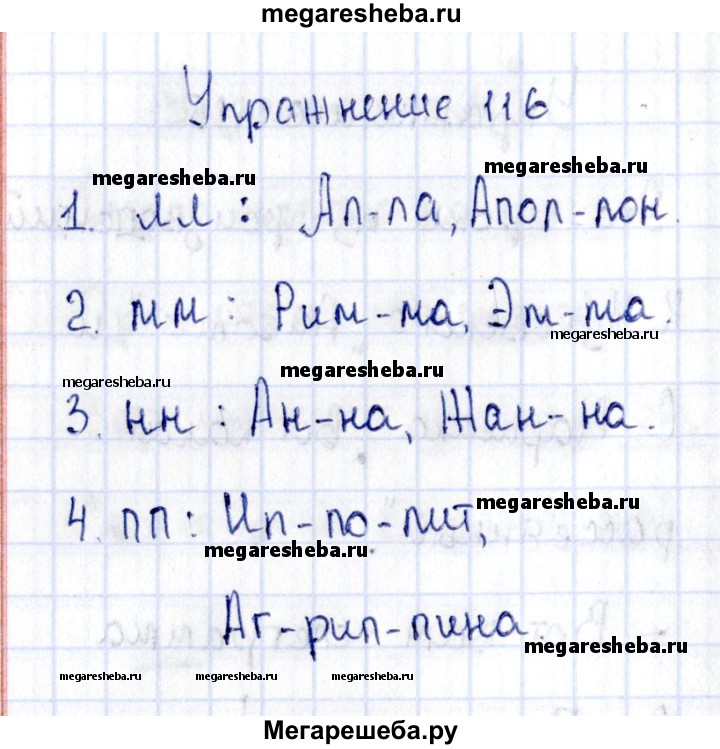 megaresheba.ru
Упражнение 116
megaresheba.ru
megaresheba.ru
1. лл : Ал-ла, Апол-лон.
2. мм : Рим-ма, Эм-ма.
megaresheba.ru
megaresheba.ru
megaresheba.ru
3. нн : Ан-на, Жан-на.
megaresheba.ru
4. пп : Ип-по-лит,
megaresheba.ru
Аг-рип-пина
megaresheba.ru
megaresheba.ru megaresheba.ru megaresheba.ru
Мегарешеба.ру